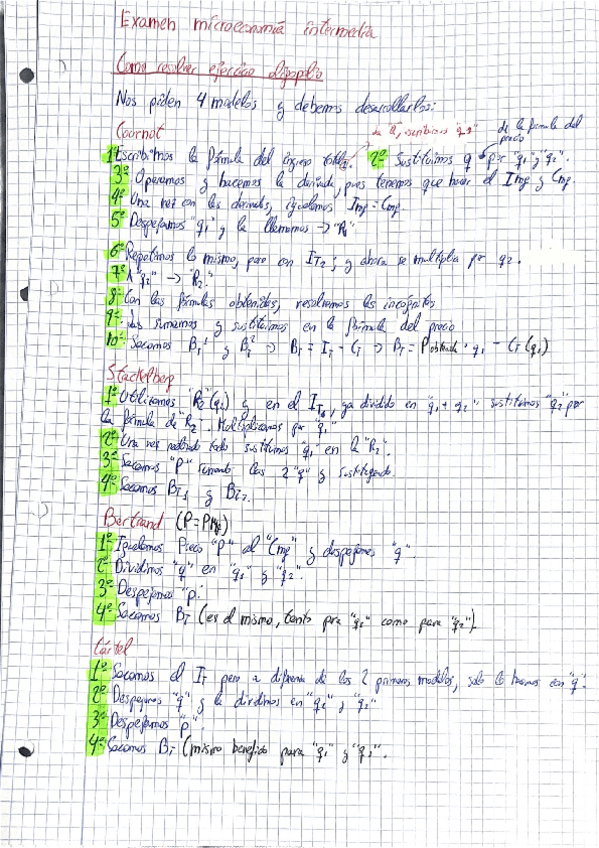 Examen microeconomía intermedia
Como resolver ejercicio oligopolio
Nos piden 4 modelos y debemos desarrollarlos:
Cournot
1º Escribimos la fórmula del ingreso total
2º Sustituimos q de la fórmula del precio por "q1" y "q2".
3º Operamos y hacemos la derivada, pues tenemos que hacer el Img y Cmg
4º Una vez con las derivadas, igualamos Img = Cmg.
5º Despejamos "q1" y la llamamos → "R1"
6º Repetimos lo mismo, pero con IT2; y ahora se multiplica por q2.
7º A "q2" → "R2"
8º Con las fórmulas obtenidas, resolvemos las incógnitas
9º Las sumamos y sustituimos en la fórmula del precio
10º Sacamos BT1 y BT2 → BT = IT - CT → BT = P obtenida · q1 - CT(q1)
Stackelberg
1º Utilizamos "R2"(q2) y en el IT1, ya dividido en "q1 + q2" sustituimos "q2" por
la fórmula de "R2". Multiplicamos por "q1"
2º Una vez realizado todo sustituimos "q1" en la "R2".
3º Sacamos "P" sumando las 2 "q" y sustituyendo.
4º Sacamos BT1 y BT2.
Bertrand (P=Cmg)
1º Igualamos Precio "P" al "Cmg" y despejamos "q".
2º Dividimos "q" en "q1" y "q2".
3º Despejamos "p".
4º Sacamos BT (es el mismo, tanto para "q1" como para "q2").
Cártel
1º Sacamos el IT pero a diferencia de los 2 primeros modelos, solo lo hacemos en "q".
2º Despejamos "q" y la dividimos en "q1" y "q2"
3º Despejamos "p".
4º Sacamos BT (mismo beneficio para "q1" y "q2".